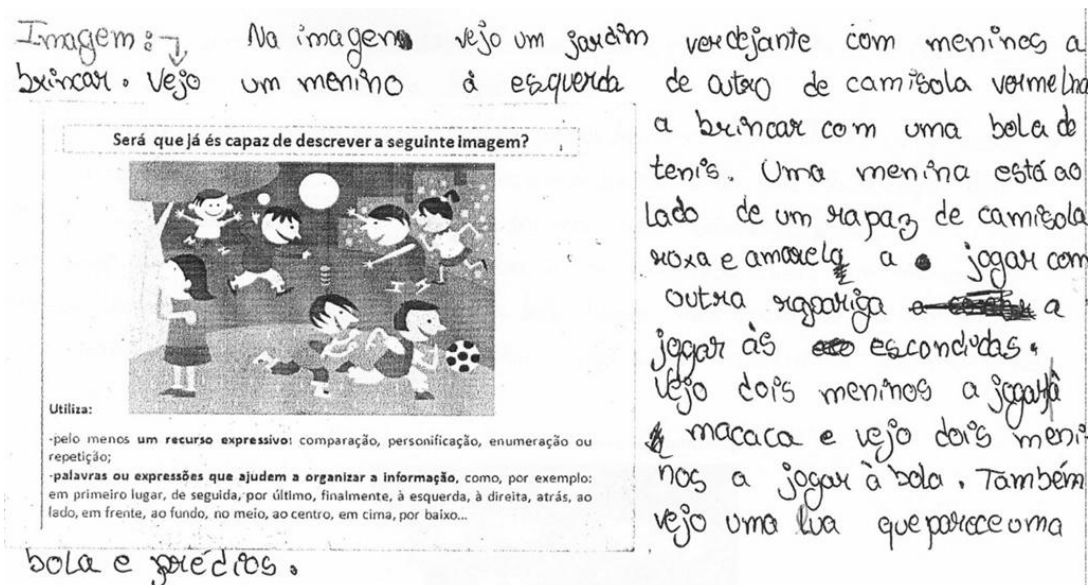 Imagem: Na imagem vejo um jardim verdejante com meninos a
brincar. Vejo um menino à esquerda de outro de camisola vermelha
a brincar com uma bola de
tenis. Uma menina está ao
lado de um rapaz de camisola
roxa e amarela a jogar com
outra rapariga a
jogar às escondidas.
Vejo dois meninos a jogar à
macaca e vejo dois meni
nos a jogar à bola. Também
vejo uma lua que parece uma
bola e prédios.
Será que já és capaz de descrever a seguinte imagem?
Utiliza:
-pelo menos um recurso expressivo: comparação, personificação, enumeração ou
repetição;
-palavras ou expressões que ajudem a organizar a informação, como, por exemplo:
em primeiro lugar, de seguida, por último, finalmente, à esquerda, à direita, atrás, ao
lado, em frente, ao fundo, no meio, ao centro, em cima, por baixo...